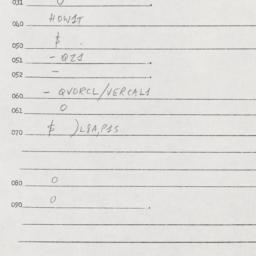 031 0
040 HOW1T
050 $
051 - QZ1
052 -
060 - QVDRCL/VERCAL1
061 0
070 $ )L8A,P1S
080 0
090 0